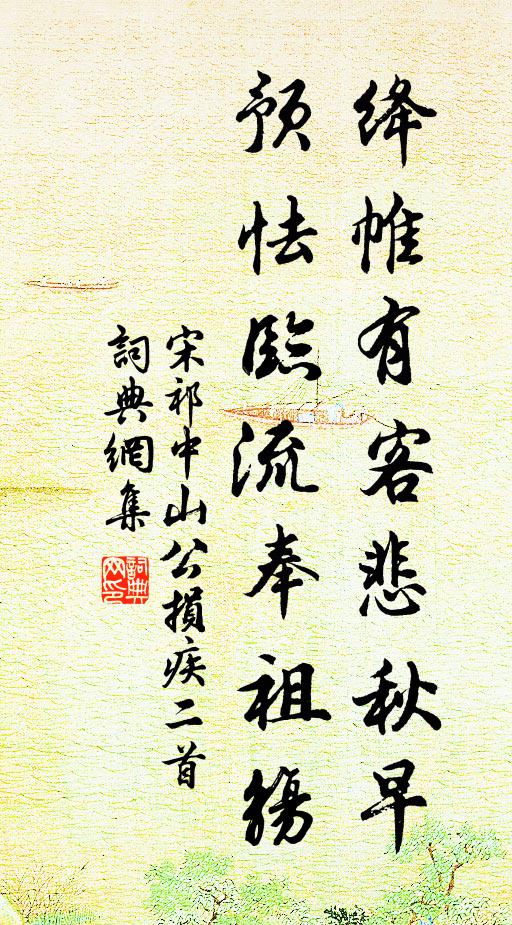 絳帷有客悲秋早
預怯臨流奉祖觴
宋祁中山公損疾二首
詞典網集
詞典
网印